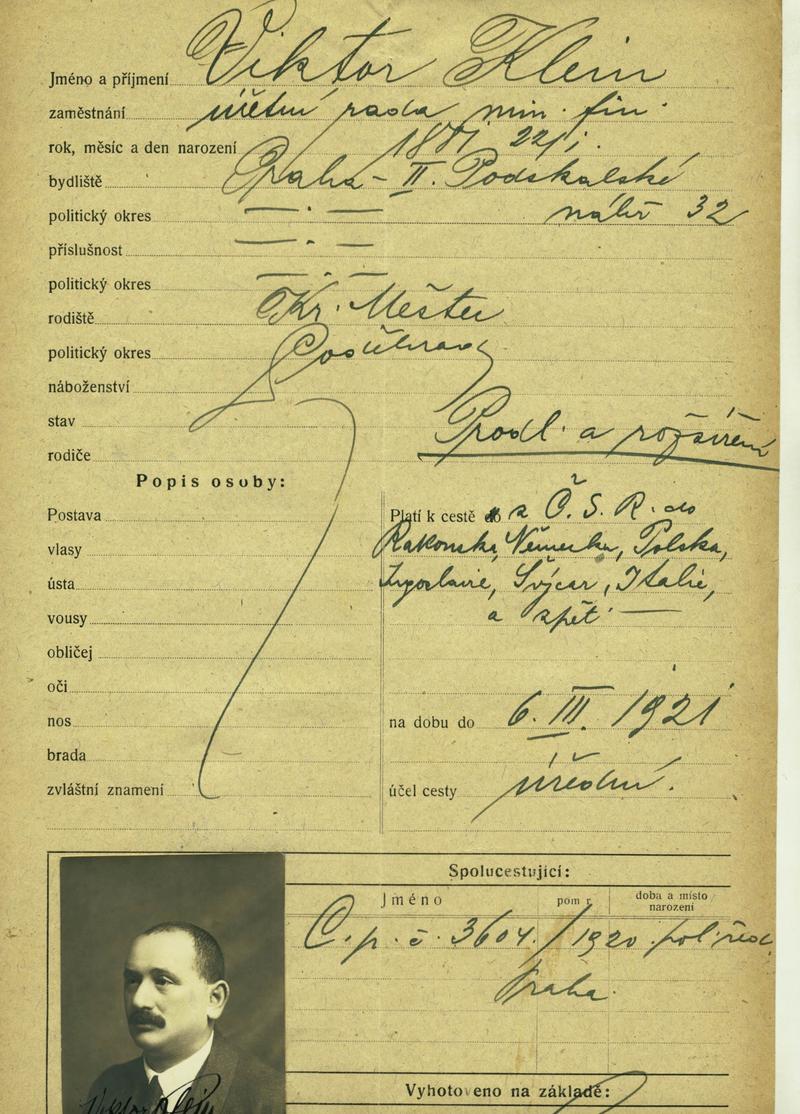 Jméno a příjmení Viktor Klein
zaměstnání účetní rada min. fin.
rok, měsíc a den narození 22/1.
bydliště Praha - II. Podskalské
politický okres — . — nábř 32
příslušnost — . —
politický okres — . —
rodiště Kr. Městec
politický okres Poděbrady
náboženství
stav
rodiče
Prodl. a rozšíření
Popis osoby:
Postava
vlasy
ústa
vousy
obličej
oči
nos
brada
zvláštní znamení
Platí k cestě z Č. S. R. do
Rakouska, Německa, Polska,
Jugoslavie, Švýcar, Italie,
a zpět —
na dobu do 6. III. 1921
účel cesty úřední.
Spolucestující:
Jméno
pom r.
doba a místo
narození
C. p. č. 3604./1920 pol. řed.
Praha.
Vyhotoveno na základě:
Viktor Klein